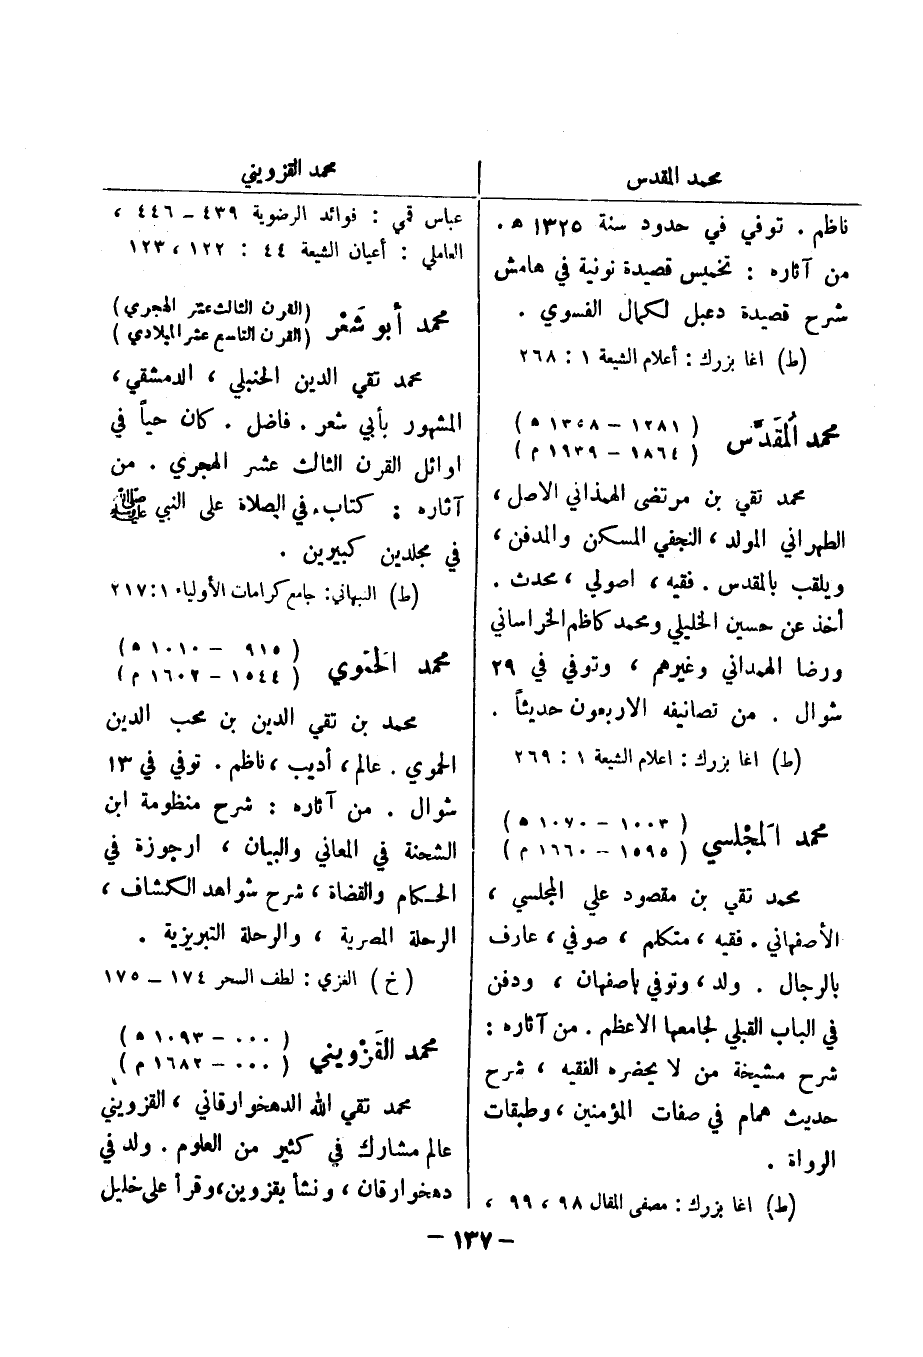 محمد المقدس
ناظم . توفي في حدود سنة ١٣٢٥ ه .
من آثاره : تخميس قصيدة نونية في هامش
شرح قصيدة دعبل لكمال الفسوي .
(ط) اغا بزرك : أعلام الشيعة ١ : ٢٦٨
محمد المُقدَّس ( ١٢٨١ – ١٣٤٨ ه )
( ١٨٦٤ – ١٩٣٩ م )
محمد تقي بن مرتضى الهمذاني الاصل ،
الطهراني المولد ، النجفي المسكن والمدفن ،
ويلقب بالمقدس . فقيه ، اصولي ، محدث .
أخذ عن حسين الخليلي ومحمد كاظم الخراساني
ورضا الهمداني وغيرهم ، وتوفي في ٢٩
شوال . من تصانيفه الاربعون حديثاً .
(ط) اغا بزرك : اعلام الشيعة ١ : ٢٦٩
محمد المَجْلسي ( ١٠٠٣ – ١٠٧٠ ه )
( ١٥٩٥ – ١٦٦٠ م )
محمد تقي بن مقصود علي المجلسي ،
الأصفهاني . فقيه ، متكلم ، صوفي ، عارف
بالرجال . ولد ، وتوفي بأصفهان ، ودفن
في الباب القبلي لجامعها الاعظم . من آثاره :
شرح مشيخة من لا يحضره الفقيه ، شرح
حديث همام في صفات المؤمنين ، وطبقات
الرواة .
(ط) اغا بزرك : مصفى المقال ٩٨ ، ٩٩ ،
محمد القزويني
عباس قمي : فوائد الرضوية ٤٣٩ – ٤٤٦ ،
العاملي : أعيان الشيعة ٤٤ : ١٢٢ ، ١٢٣
محمد أبو شَعْر (القرن الثالث عشر الهجري)
(القرن التاسع عشر الميلادي)
محمد تقي الدين الحنبلي ، الدمشقي ،
المشهور بأبي شعر . فاضل . كان حياً في
اوائل القرن الثالث عشر الهجري . من
آثاره : كتاب في الصلاة على النبي ﷺ
في مجلدين كبيرين .
(ط) النبهاني : جامع كرامات الأولياء ١ : ٢١٧
محمد الحَمَوي ( ٩١٥ – ١٠١٠ ه )
( ١٥٤٤ – ١٦٠٢ م )
محمد بن تقي الدين بن محب الدين
الحموي . عالم ، أديب ، ناظم . توفي في ١٣
شوال . من آثاره : شرح منظومة ابن
الشحنة في المعاني والبيان ، ارجوزة في
الحكام والقضاة ، شرح شواهد الكشاف ،
الرحلة المصرية ، والرحلة التبريزية .
(خ) الغزي : لطف السحر ١٧٤ – ١٧٥
محمد القَزْويني ( ٠٠٠ – ١٠٩٣ ه )
( ٠٠٠ – ١٦٨٢ م )
محمد تقي الله الدهخوارقاني ، القزويني
عالم مشارك في كثير من العلوم . ولد في
دهخوارقان ، ونشأ بقزوين ، وقرأ على خليل
– ١٣٧ –